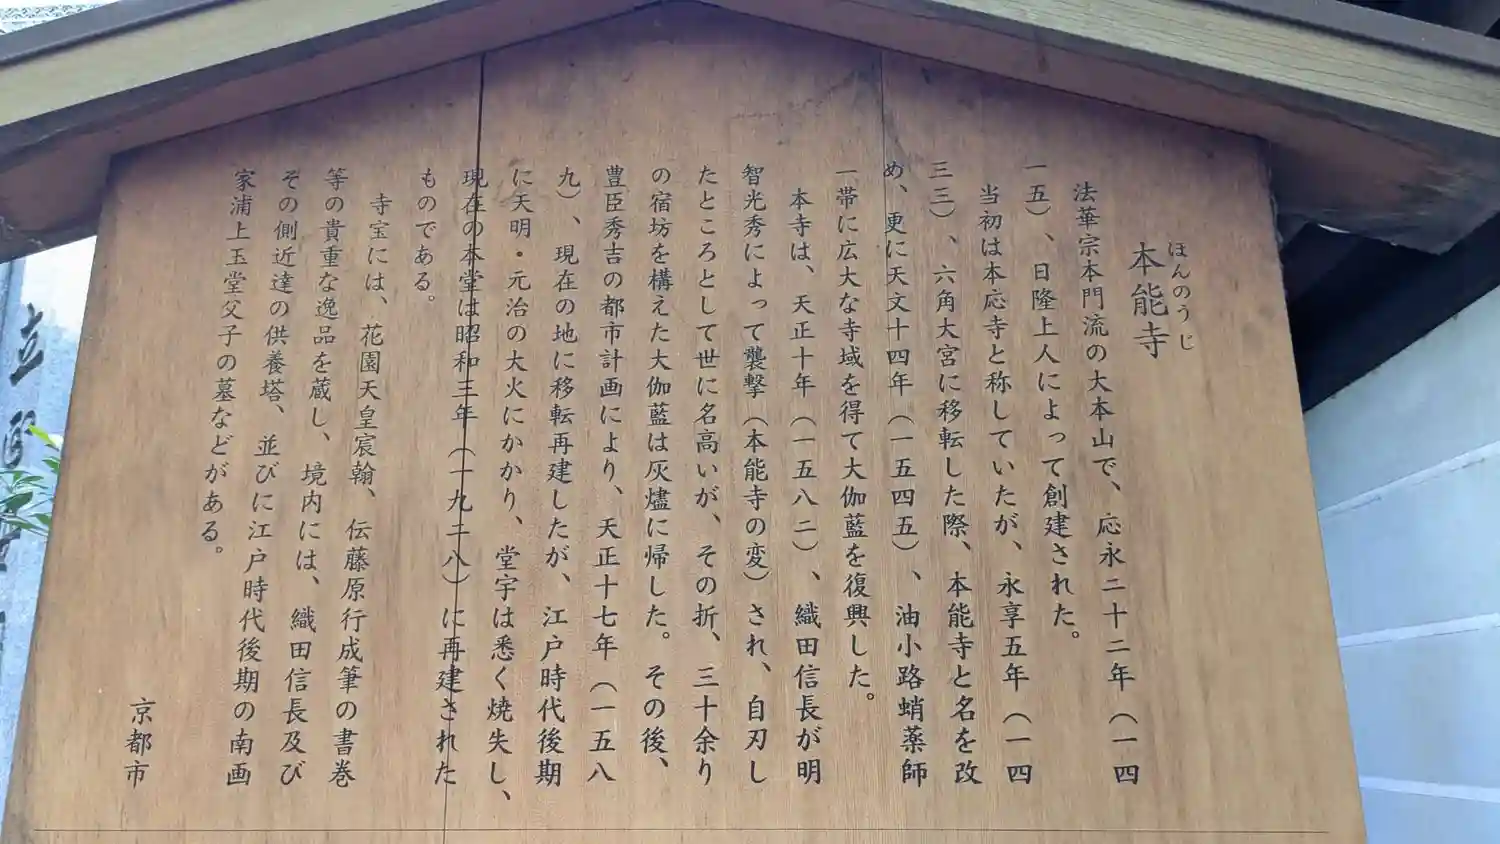 ほんのうじ
本能寺
法華宗本門流の大本山で、応永二十二年（一四
一五）、日隆上人によって創建された。
当初は本応寺と称していたが、永享五年（一四
三三）、六角大宮に移転した際、本能寺と名を改
め、更に天文十四年（一五四五）、油小路蛸薬師
一帯に広大な寺域を得て大伽藍を復興した。
本寺は、天正十年（一五八二）、織田信長が明
智光秀によって襲撃（本能寺の変）され、自刃し
たところとして世に名高いが、その折、三十余り
の宿坊を構えた大伽藍は灰燼に帰した。その後、
豊臣秀吉の都市計画により、天正十七年（一五八
九）、現在の地に移転再建したが、江戸時代後期
に天明・元治の大火にかかり、堂宇は悉く焼失し、
現在の本堂は昭和三年（一九二八）に再建された
ものである。
寺宝には、花園天皇宸翰、伝藤原行成筆の書巻
等の貴重な逸品を蔵し、境内には、織田信長及び
その側近達の供養塔、並びに江戸時代後期の南画
家浦上玉堂父子の墓などがある。
京都市